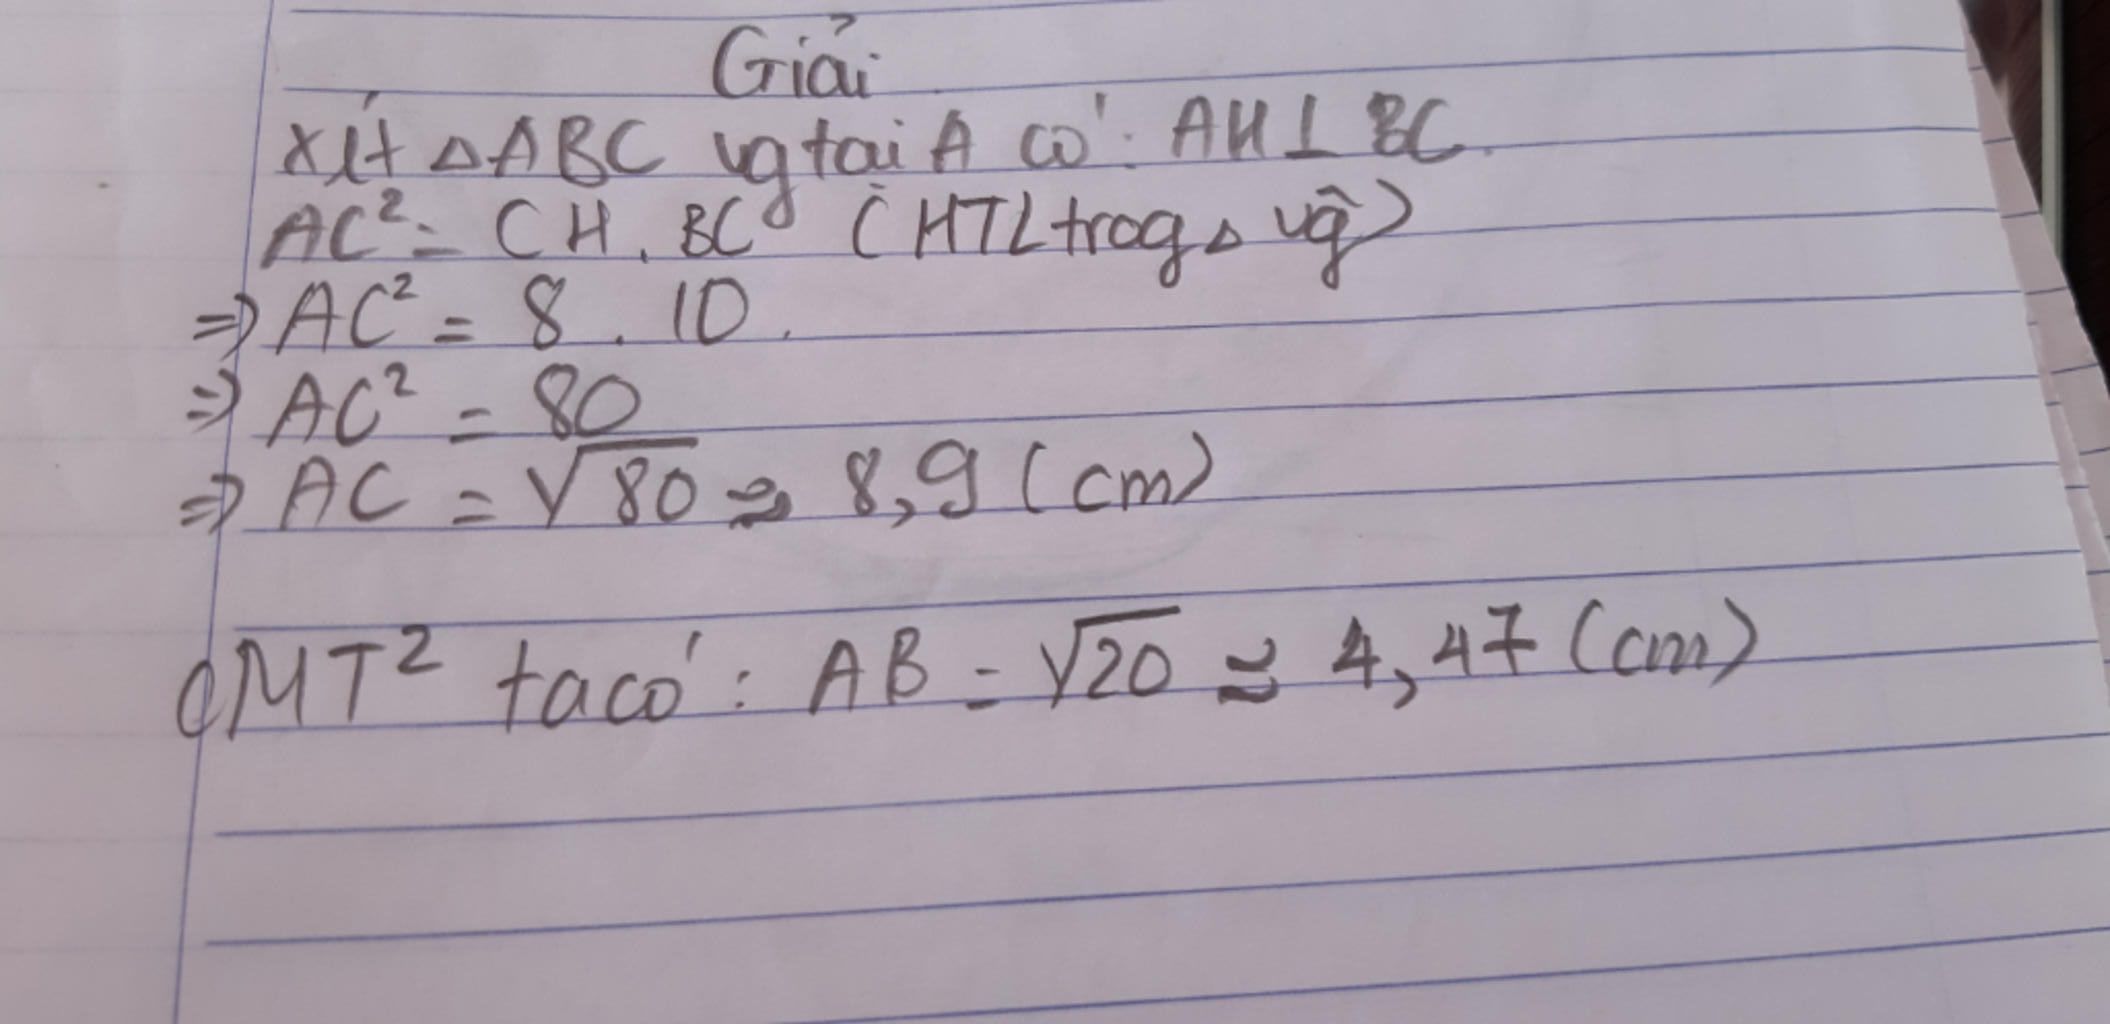 Giải
Xét ΔABC vg tại A có: AH⊥BC.
AC² = CH. BC (HTL trog Δ vg)
=> AC² = 8 . 10.
=> AC² = 80
=> AC = √80 ≈ 8,9 (cm)
CMT² ta có: AB = √20 ≈ 4,47 (cm)